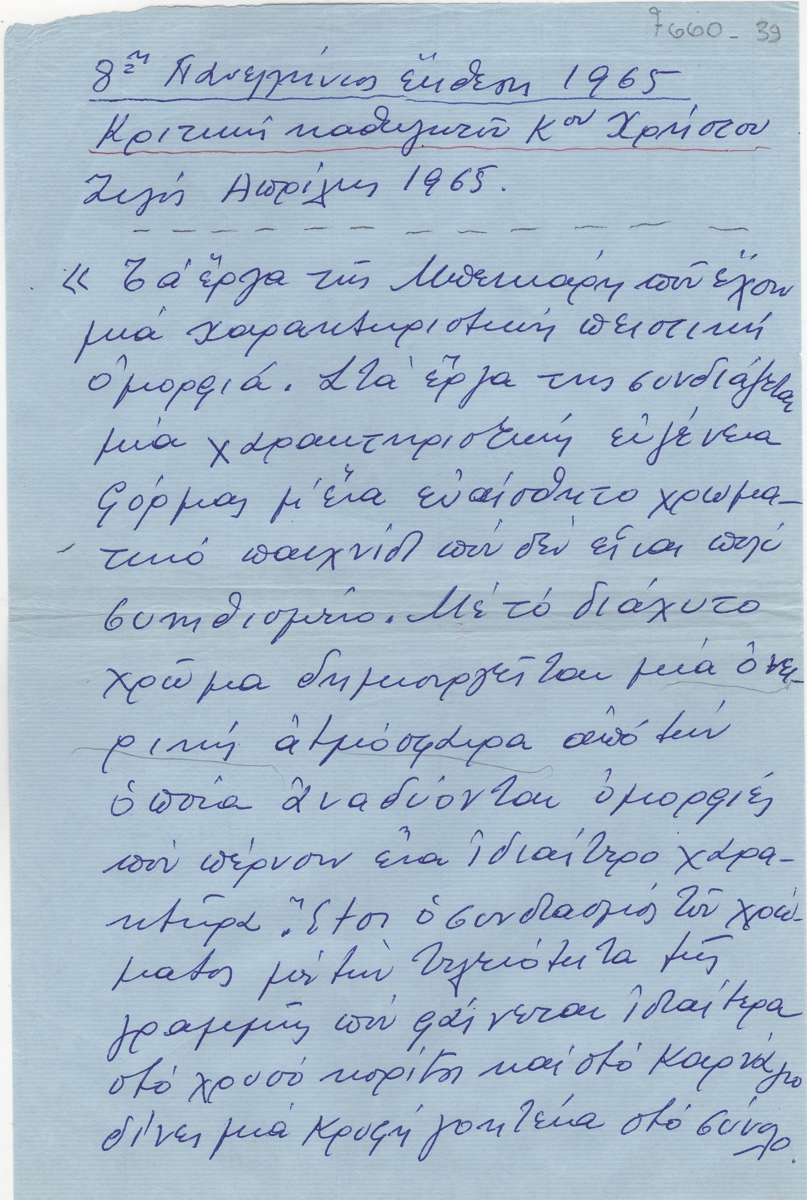 7660-39
8η Πανελλήνιος ἔκθεση 1965
Κριτική καθηγητοῦ Κου Χρήστου
Ἀπρίλης 1965.
« Τά ἔργα τῆς Μπεκιάρη πού ἔχουν
μιά χαρακτηριστική πειστική
ὀμορφιά. Στά ἔργα της συνδιάζεται
μία χαρακτηριστική εὐγένεια
φόρμας μ' ἕνα εὐαίσθητο χρωμα-
τικό παιχνίδι πού δέν εἶναι πολύ
συνηθισμένο. Μέ τό διάχυτο
χρῶμα δημιουργεῖται μιά ὀνει-
ρική ἀτμόσφαιρα ἀπό τήν
ὁποία ἀναδύονται ὀμορφιές
πού πέρνουν ἕνα ἰδιαίτερο χαρα-
κτῆρα. Ἔτσι ὁ συνδιασμός τοῦ χρώ-
ματος μέ τήν τελειότητα τῆς
γραμμῆς πού φαίνεται ἰδιαίτερα
στό χρυσό κορίτσι καί στό
δίνει μιά κρυφή γοητεία στό σύνολο.